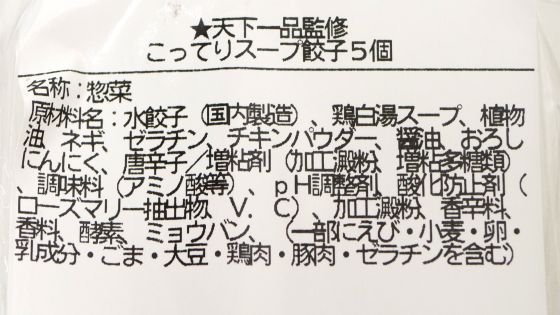 ★天下一品監修
こってりスープ餃子5個
名称:惣菜
原材料名:水餃子(国内製造)、鶏白湯スープ、植物
油、ネギ、ゼラチン、チキンパウダー、醤油、おろし
にんにく、唐辛子/増粘剤(加工澱粉、増粘多糖類)
、調味料(アミノ酸等)、pH調整剤、酸化防止剤(
ローズマリー抽出物、V.C)、加工澱粉、香辛料、
香料、酵素、ミョウバン、(一部にえび・小麦・卵・
乳成分・ごま・大豆・鶏肉・豚肉・ゼラチンを含む)